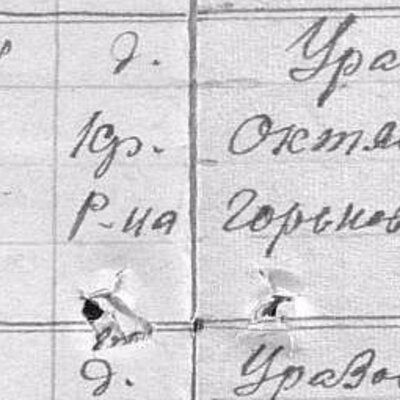 д. Ура
Кр. Октя
Р-на Горьков
д. Уразо